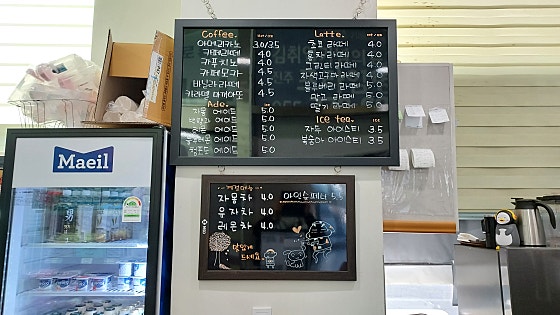 Maeil
Coffee. Hot / Ice
아메리카노 3.0/3.5
카페라떼 4.0
카푸치노 4.0
카페모카 4.5
바닐라라떼 4.5
카라멜 마끼아또 4.5
Ade.
자몽 에이드 5.0
에이드 5.0
에이드 5.0
에이드 5.0
에이드 5.0
Latte. Hot / Ice
라떼 4.0
라떼 4.0
라떼 4.0
자색고구마라떼 4.0
블루베리 라떼 5.0
망고 라떼 5.0
딸기 라떼 5.0
Ice tea. Ice
자두 아이스티 3.5
복숭아 아이스티 3.5
자몽차 4.0
유자차 4.0
레몬차 4.0
아인슈페너 5.5
맛있게
드세요